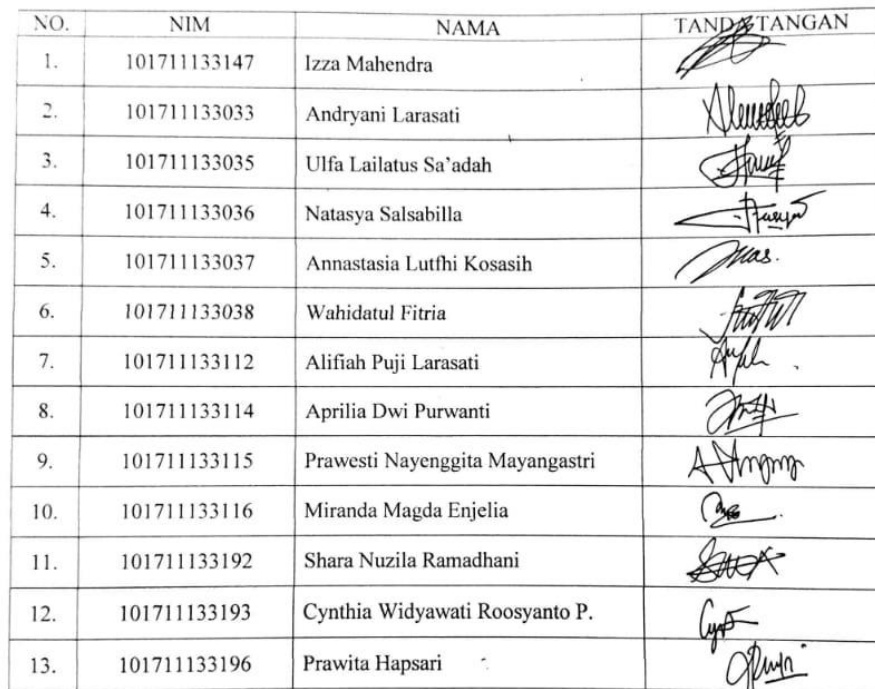 NO. NIM NAMA TANDA TANGAN
1. 101711133147 Izza Mahendra
2. 101711133033 Andryani Larasati
3. 101711133035 Ulfa Lailatus Sa’adah
4. 101711133036 Natasya Salsabilla
5. 101711133037 Annastasia Lutfhi Kosasih
6. 101711133038 Wahidatul Fitria
7. 101711133112 Alifiah Puji Larasati
8. 101711133114 Aprilia Dwi Purwanti
9. 101711133115 Prawesti Nayenggita Mayangastri
10. 101711133116 Miranda Magda Enjelia
11. 101711133192 Shara Nuzila Ramadhani
12. 101711133193 Cynthia Widyawati Roosyanto P.
13. 101711133196 Prawita Hapsari